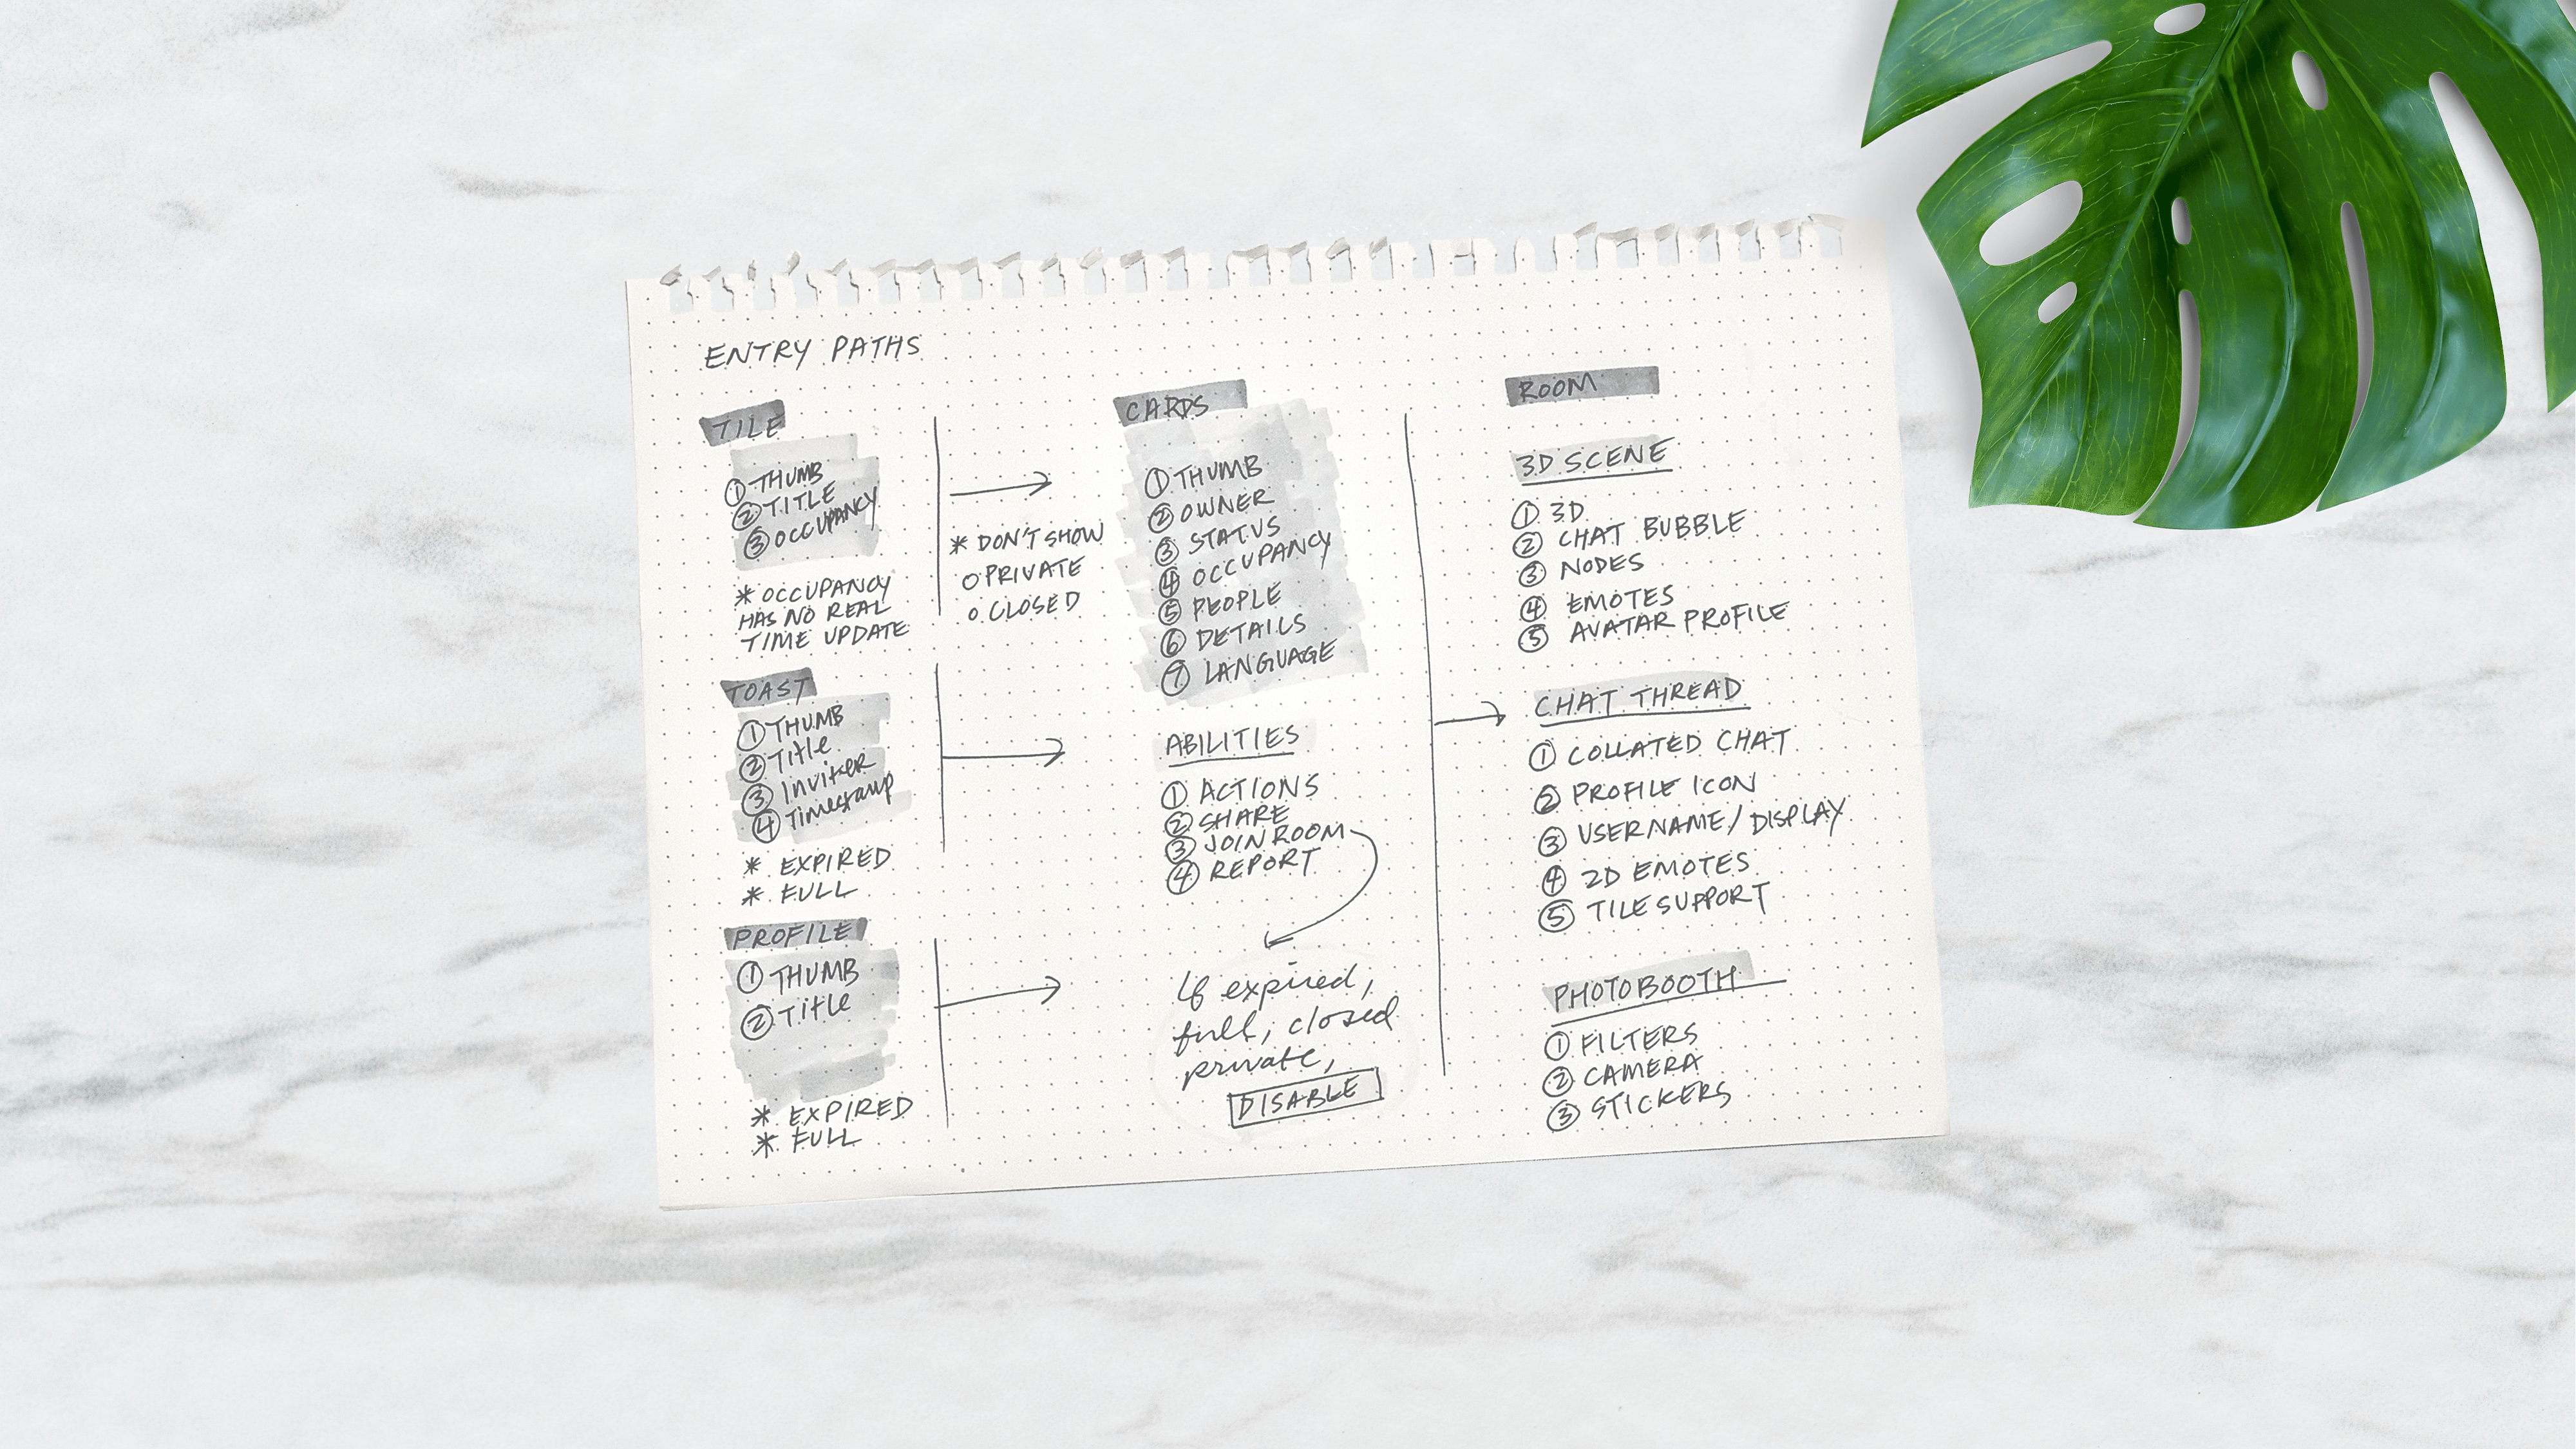 ENTRY PATHS
TILE
① THUMB
② TITLE
③ OCCUPANCY
* OCCUPANCY
HAS NO REAL
TIME UPDATE
TOAST
① THUMB
② Title
③ Inviter
④ Timestamp
* EXPIRED
* FULL
PROFILE
① THUMB
② Title
* EXPIRED
* FULL
* DON'T SHOW
○ PRIVATE
○ CLOSED
CARDS
① THUMB
② OWNER
③ STATUS
④ OCCUPANCY
⑤ PEOPLE
⑥ DETAILS
⑦ LANGUAGE
ABILITIES
① ACTIONS
② SHARE
③ JOIN ROOM
④ REPORT
If expired,
full, closed
private,
DISABLE
ROOM
3D SCENE
① 3D
② CHAT BUBBLE
③ NODES
④ EMOTES
⑤ AVATAR PROFILE
CHAT THREAD
① COLLATED CHAT
② PROFILE ICON
③ USERNAME/DISPLAY
④ 2D EMOTES
⑤ TILE SUPPORT
PHOTOBOOTH
① FILTERS
② CAMERA
③ STICKERS